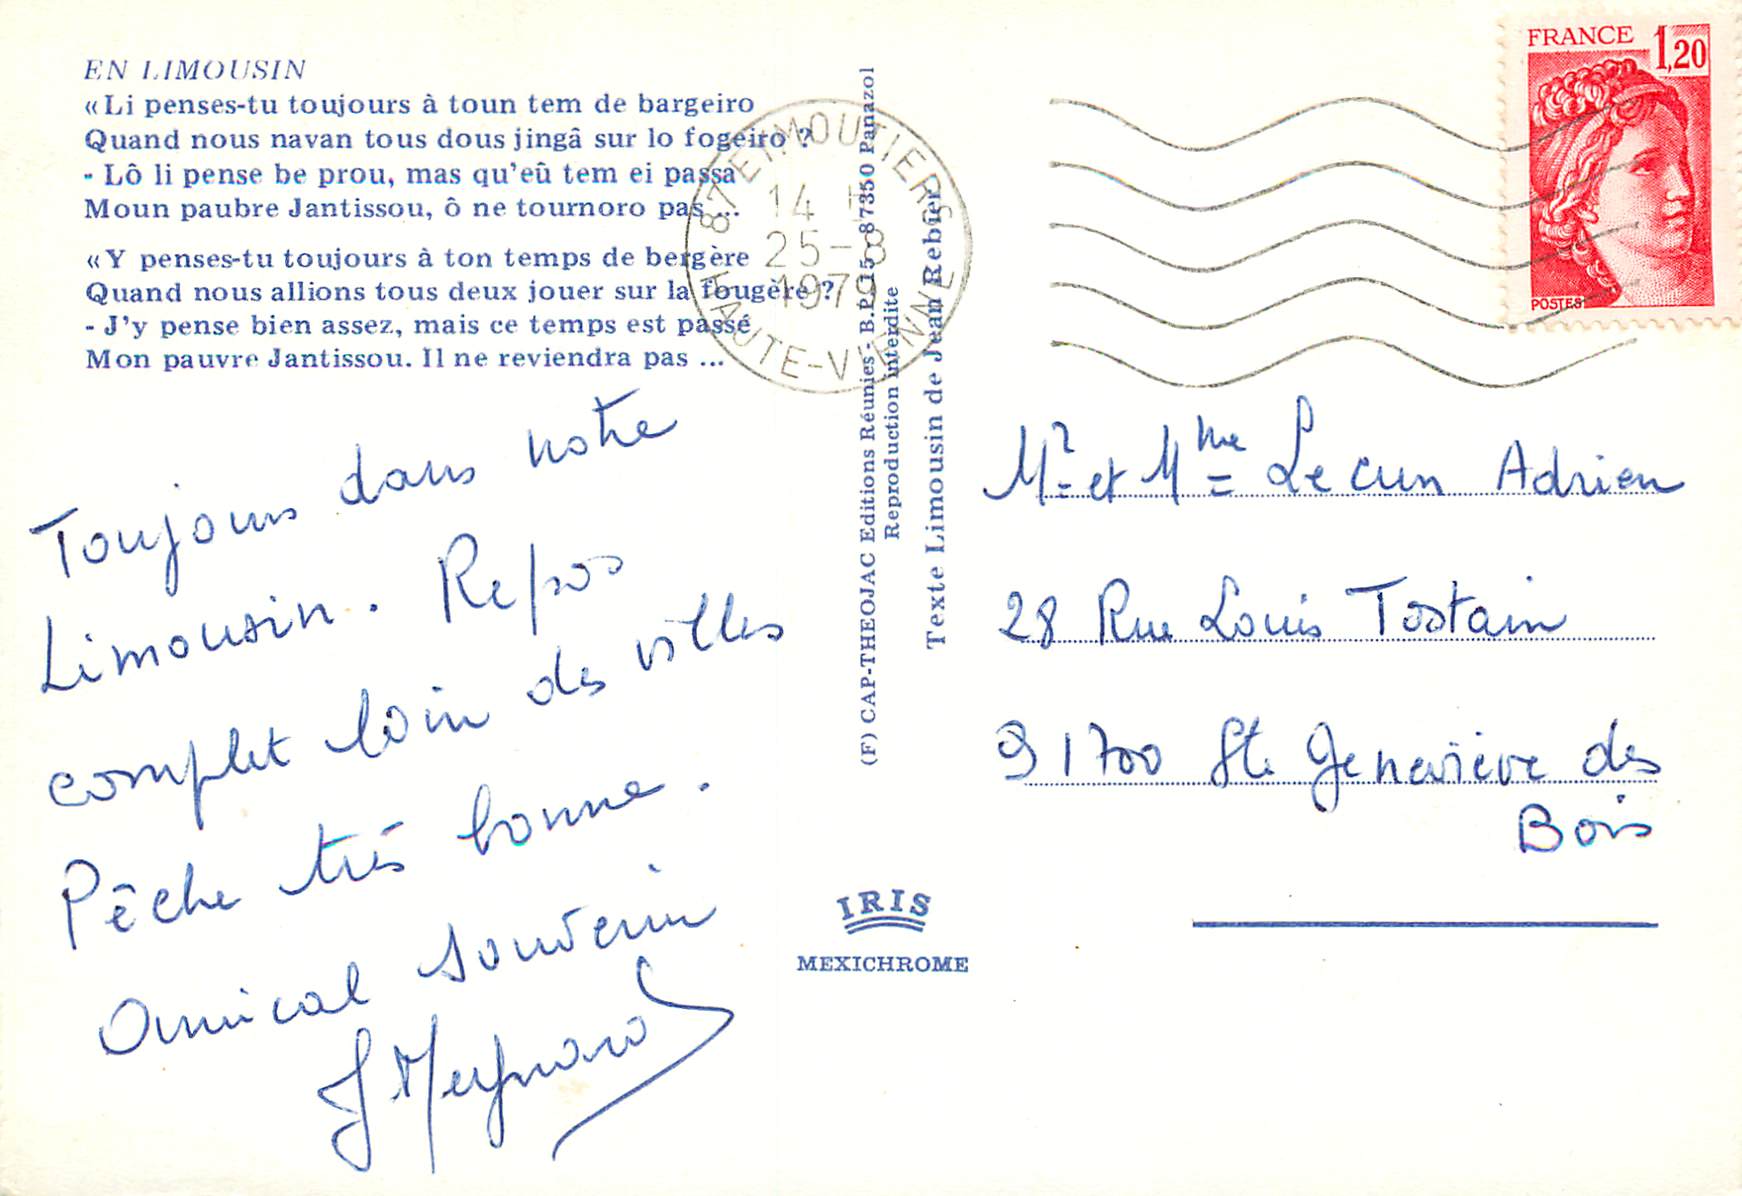 EN LIMOUSIN
«Li penses-tu toujours à toun tem de bargeiro
Quand nous navan tous dous jingâ sur lo fogeiro ?
- Lô li pense be prou, mas qu'eû tem ei passa
Moun paubre Jantissou, ô ne tournoro pas ...
«Y penses-tu toujours à ton temps de bergère
Quand nous allions tous deux jouer sur la fougère ?
- J'y pense bien assez, mais ce temps est passé
Mon pauvre Jantissou. Il ne reviendra pas ...
Toujours dans notre
Limousin. Repos
complet loin des villes
Pêche très bonne.
Amical souvenir
(F) CAP-THEOJAC Editions Réunies - B.P. 15-87350 Panazol
Reproduction interdite
Texte Limousin de Jean Rebier
IRIS
MEXICHROME
87 EYMOUTIERS
14 H
25-8
1979
HAUTE-VIENNE
FRANCE 1,20
POSTES
Mr et Mme Le cun Adrien
28 Rue Louis Tostain
91700 Ste Geneviève des
Bois